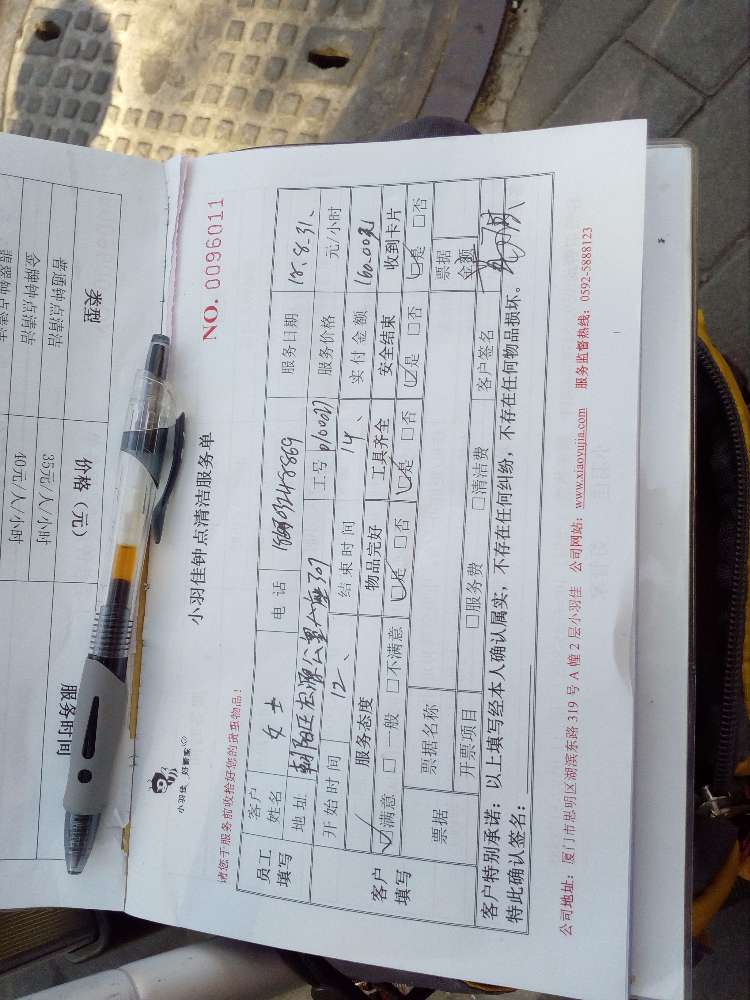 小羽佳 好管家
小羽佳钟点清洁服务单
NO. 0096011
请您于服务前收检好您的贵重物品!
员工填写
客户姓名 女士 电话 服务日期 18.8.31、
地址 工号 服务价格 元/小时
开始时间 12、 结束时间 14、 实付金额 160.00元
客户填写
服务态度 物品完好 工具齐全 安全结束 收到卡片
☑满意 □一般 □不满意 ☑是 □否 ☑是 □否 ☑是 □否 ☑是 □否
票据 票据名称 票据金额
开票项目 □服务费 □清洁费 客户签名
客户特别承诺:以上填写经本人确认属实,不存在任何纠纷,不存在任何物品损坏。
特此确认签名:
公司地址:厦门市思明区湖滨东路 319 号 A 幢 2 层小羽佳 公司网站:www.xiaoyujia.com 服务监督热线:0592-5888123
类型 价格(元) 服务时间
普通钟点清洁 35元/人/小时
金牌钟点清洁 40元/人/小时